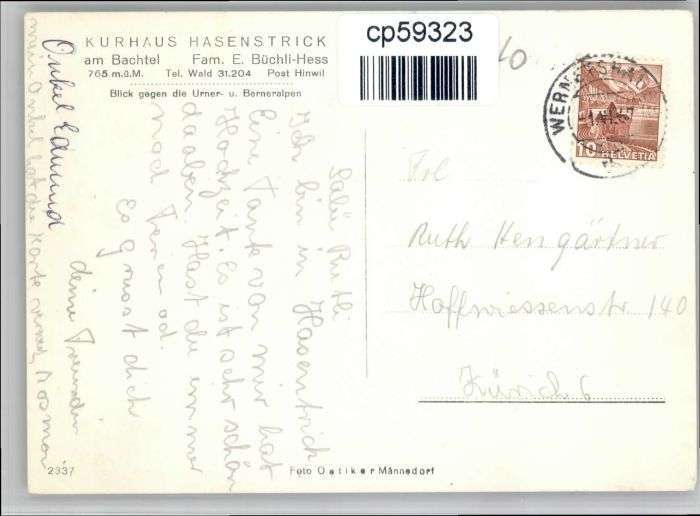 cp59323
KURHAUS HASENSTRICK
am Bachtel Fam. E. Büchli-Hess
765 m.ü.M. Tel. Wald 31.204 Post Hinwil
Blick gegen die Urner- u. Berneralpen
Salü Ruthli
Ich bin in Hasenstrick
Eine Tante von mir hat
Hochzeit. Es ist sehr schön
da oben. Hast du immer
noch Ferien od.
Es grüsst dich
deine Freundin
Onkel Edmund
mein Onkel hat die Karte
10
HELVETIA
Frl
Ruth Hengärtner
Hoffwiesenstr 140
Zürich 6
2337
Foto Oetiker Männedorf